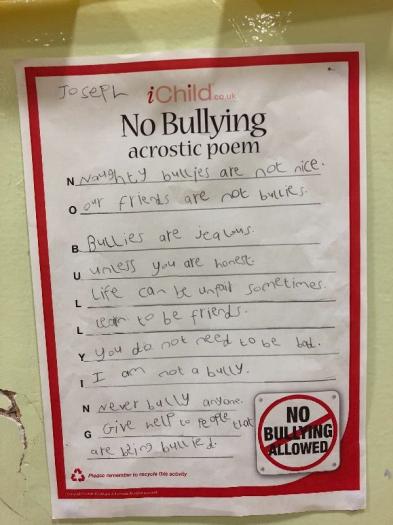 Joseph
iChild.co.uk
No Bullying
acrostic poem
N Naughty bullies are not nice.
O our friends are not bullies.
B Bullies are jealous.
U unless you are honest.
L Life can be unfair sometimes.
L learn to be friends.
Y you do not need to be bad.
I I am not a bully.
N Never bully anyone.
G Give help to people that
are being bullied.
NO
BULLYING
ALLOWED
Please remember to recycle this activity